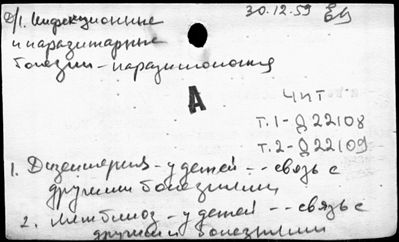 с/1. Инфекционные
30.12.59
и паразитарные
болезни – паразитология
А
ЧИТ
т.1-Д22108
т.2-Д22109
1. Дизентерия – у детей -- связь с
другими болезнями
2. Лямблиоз – у детей -- связь с
другими болезнями